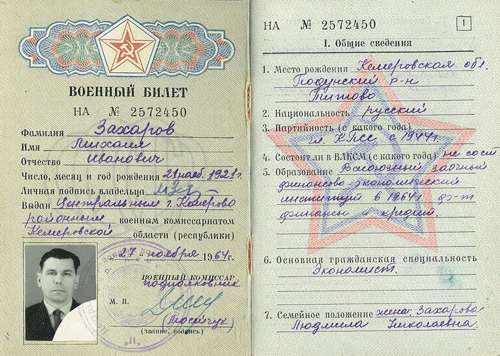 ВОЕННЫЙ БИЛЕТ
НА № 2572450
Фамилия Захаров
Имя Михаил
Отчество Иванович
Число, месяц и год рождения 21 нояб. 1921 г.
Личная подпись владельца
Выдан Центральным г. Кемерово
районным военным комиссариатом
Кемеровской области (республики)
27 ноября 1964 г.
ВОЕННЫЙ КОМИССАР
подполковник
М. П.
(звание, подпись)
НА № 2572450 1
I. Общие сведения
1. Место рождения Кемеровская обл.
р-н
Титово
2. Национальность русский
3. Партийность (с какого года)
чл. КПСС с 1944 г.
4. Состоял ли в ВЛКСМ (с какого года) не сост
5. Образование Всесоюзный заочный
финансово экономический
институт в 1964 г. ф-т
финансы кредит.
6. Основная гражданская специальность
Экономист.
7. Семейное положение жена: Захарова
Людмила Николаевна